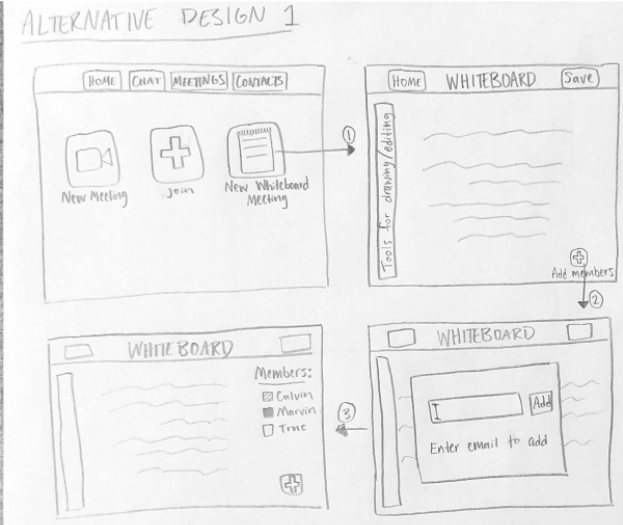 ALTERNATIVE DESIGN 1
HOME CHAT MEETINGS CONTACTS
New Meeting
Join
New Whiteboard
Meeting
1
HOME WHITEBOARD Save
Tools for drawing/editing
Add members
2
WHITEBOARD
Add
Enter email to add
3
WHITEBOARD
Members:
Calvin
Marvin